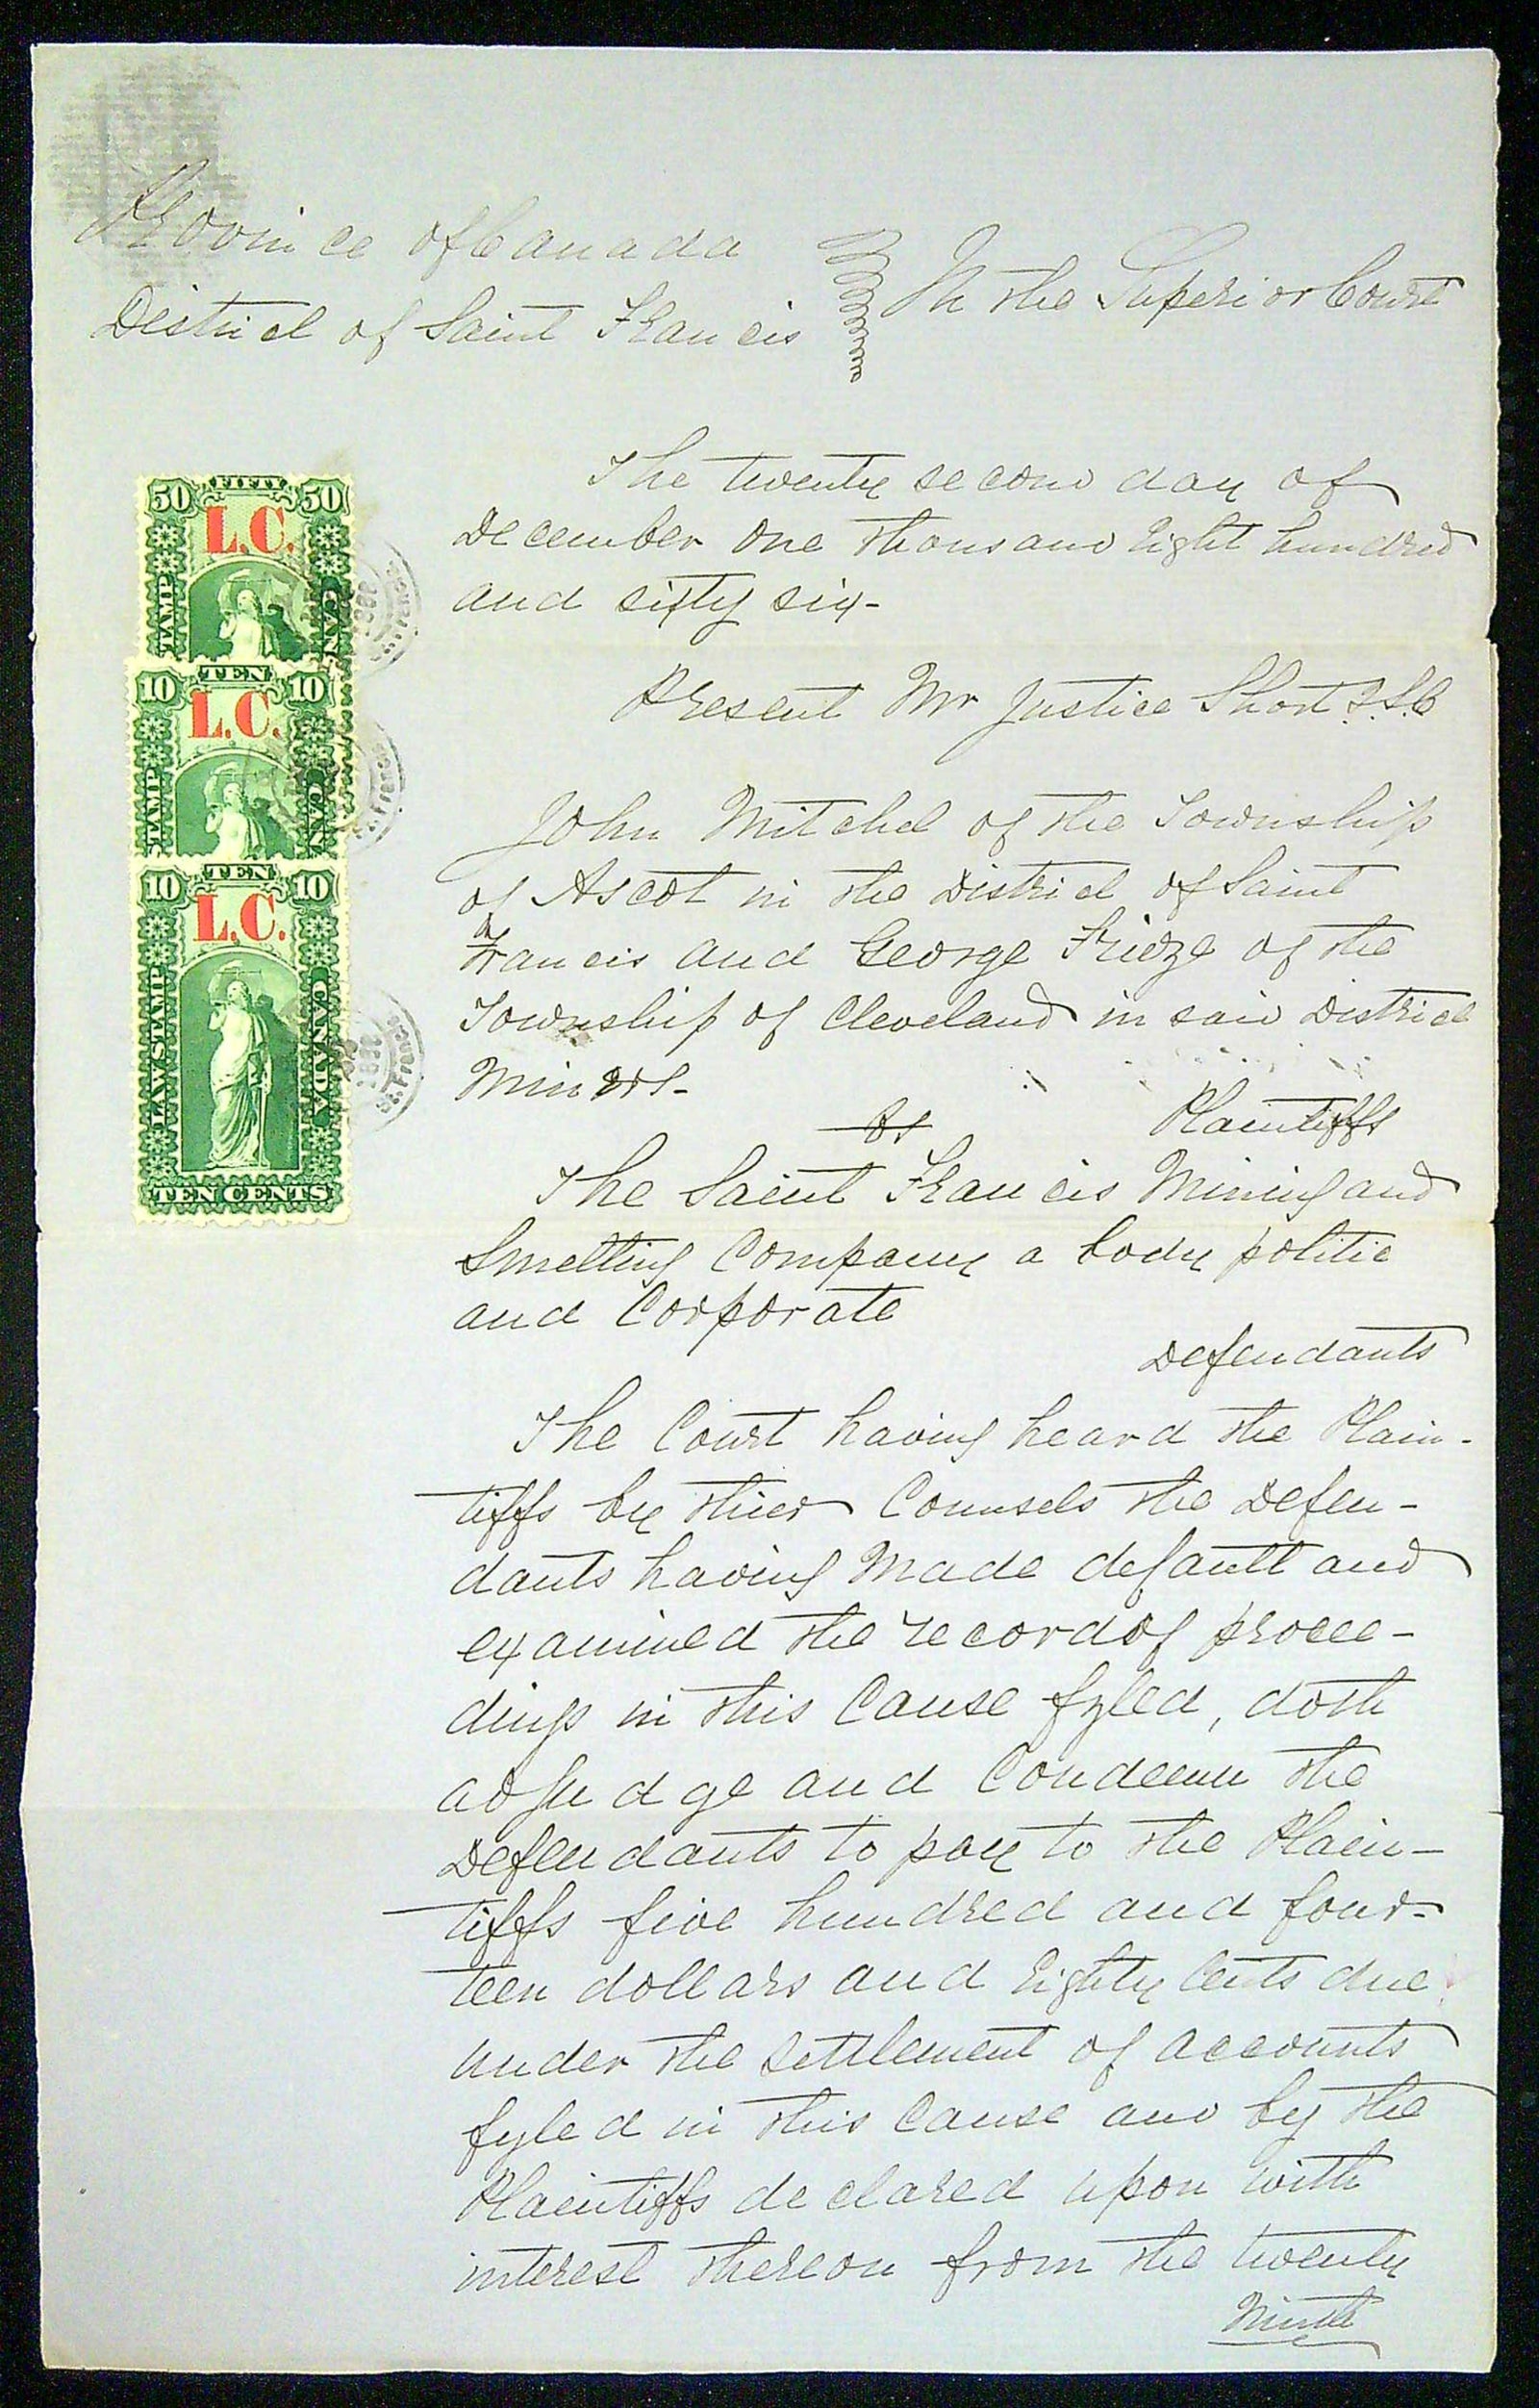 Province of Canada
District of Saint Francis
In the Superior Court
The twenty second day of
December one thousand Eight hundred
and sixty six-
Present Mr Justice Short J.S.C
John Mitchel of the Township
of Ascot in the District of Saint
Francis and George Fridze of the
Township of Cleveland in said District
Miners-
vs
Plaintiffs
The Saint Francis Mining and
Smelting Company a body politic
and Corporate
Defendants
The Court having heard the Plain-
tiffs by thier Counsels the Defen-
dants having made default and
examined the record of procee-
dings in this Cause fyled, doth
adjudge and Condemn the
Defendants to pay to the Plain-
tiffs five hundred and four-
teen dollars and Eighty Cents due
under the settlement of accounts
fyled in this Cause and by the
Plaintiffs declared upon with
interest thereon from the twenty
Ninth
50 FIFTY 50
L.C.
STAMP
CAN
10 TEN 10
L.C.
STAMP
CAN
10 TEN 10
L.C.
LAW STAMP
CANADA
TEN CENTS
St. Francis
St. Francis
St. Francis